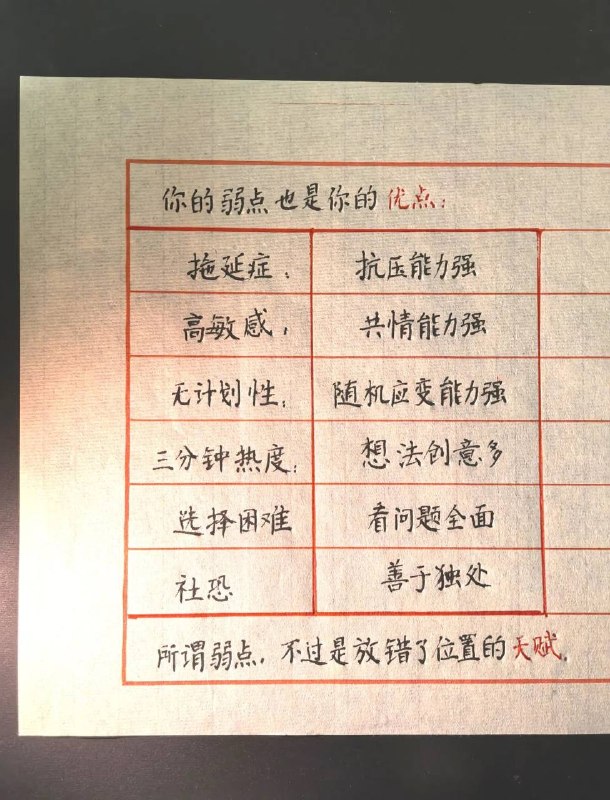 你的弱点也是你的优点：
拖延症： 抗压能力强
高敏感， 共情能力强
无计划性： 随机应变能力强
三分钟热度： 想法创意多
选择困难 看问题全面
社恐 善于独处
所谓弱点，不过是放错了位置的天赋。